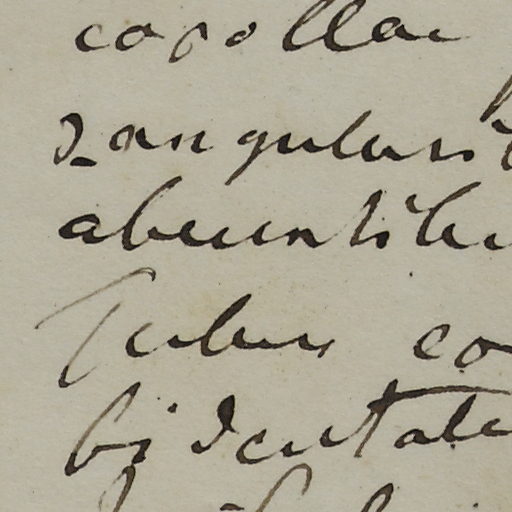 corollae
2-angularib
abeuntibu
Tubus co
bidentate